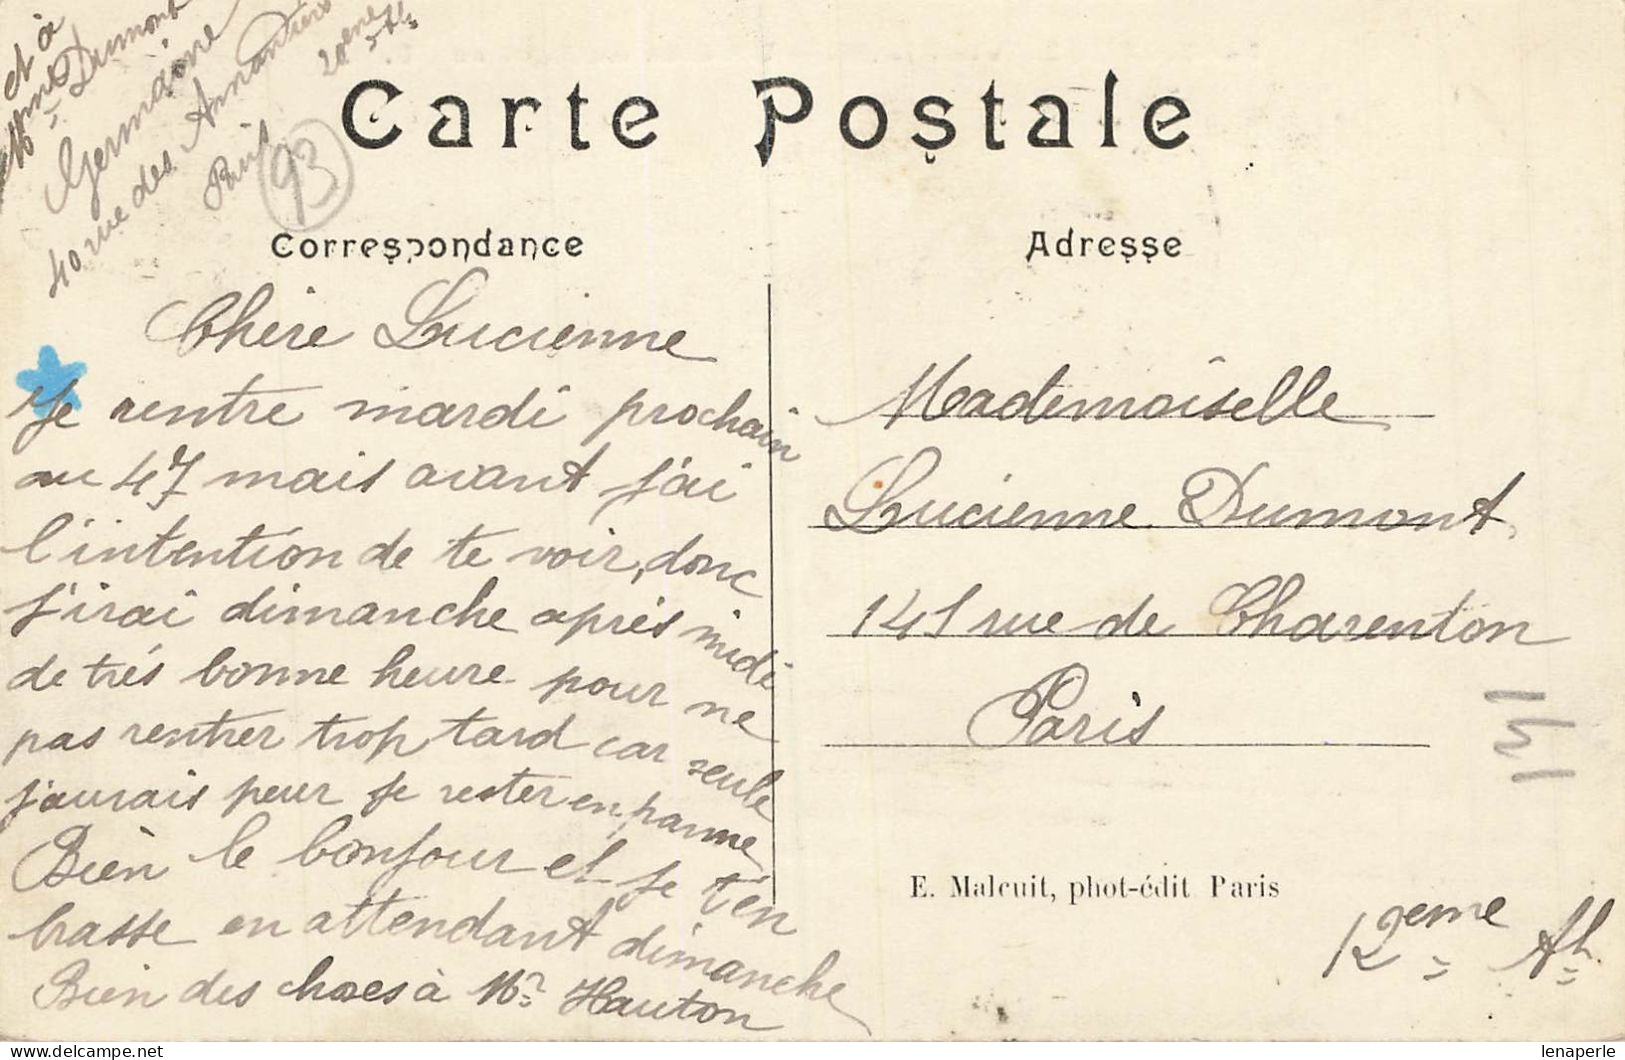 et à
Mme Dumont
Germaine
40 rue des Amandiers
Paris
20ème
93
Carte Postale
Correspondance
Chère Lucienne
Je rentre mardi prochain
au 47 mais avant j'ai
l'intention de te voir, donc
j'irai dimanche après midi
de très bonne heure pour ne
pas rentrer trop tard car seule
j'aurais peur je rester en panne
Bien le bonjour et je t'en
brasse en attendant dimanche
Bien des choses à Mr Hauton
Adresse
Mademoiselle
Lucienne Dumont
141 rue de Charenton
Paris
E. Malcuit, phot-édit Paris
12eme
lenaperle